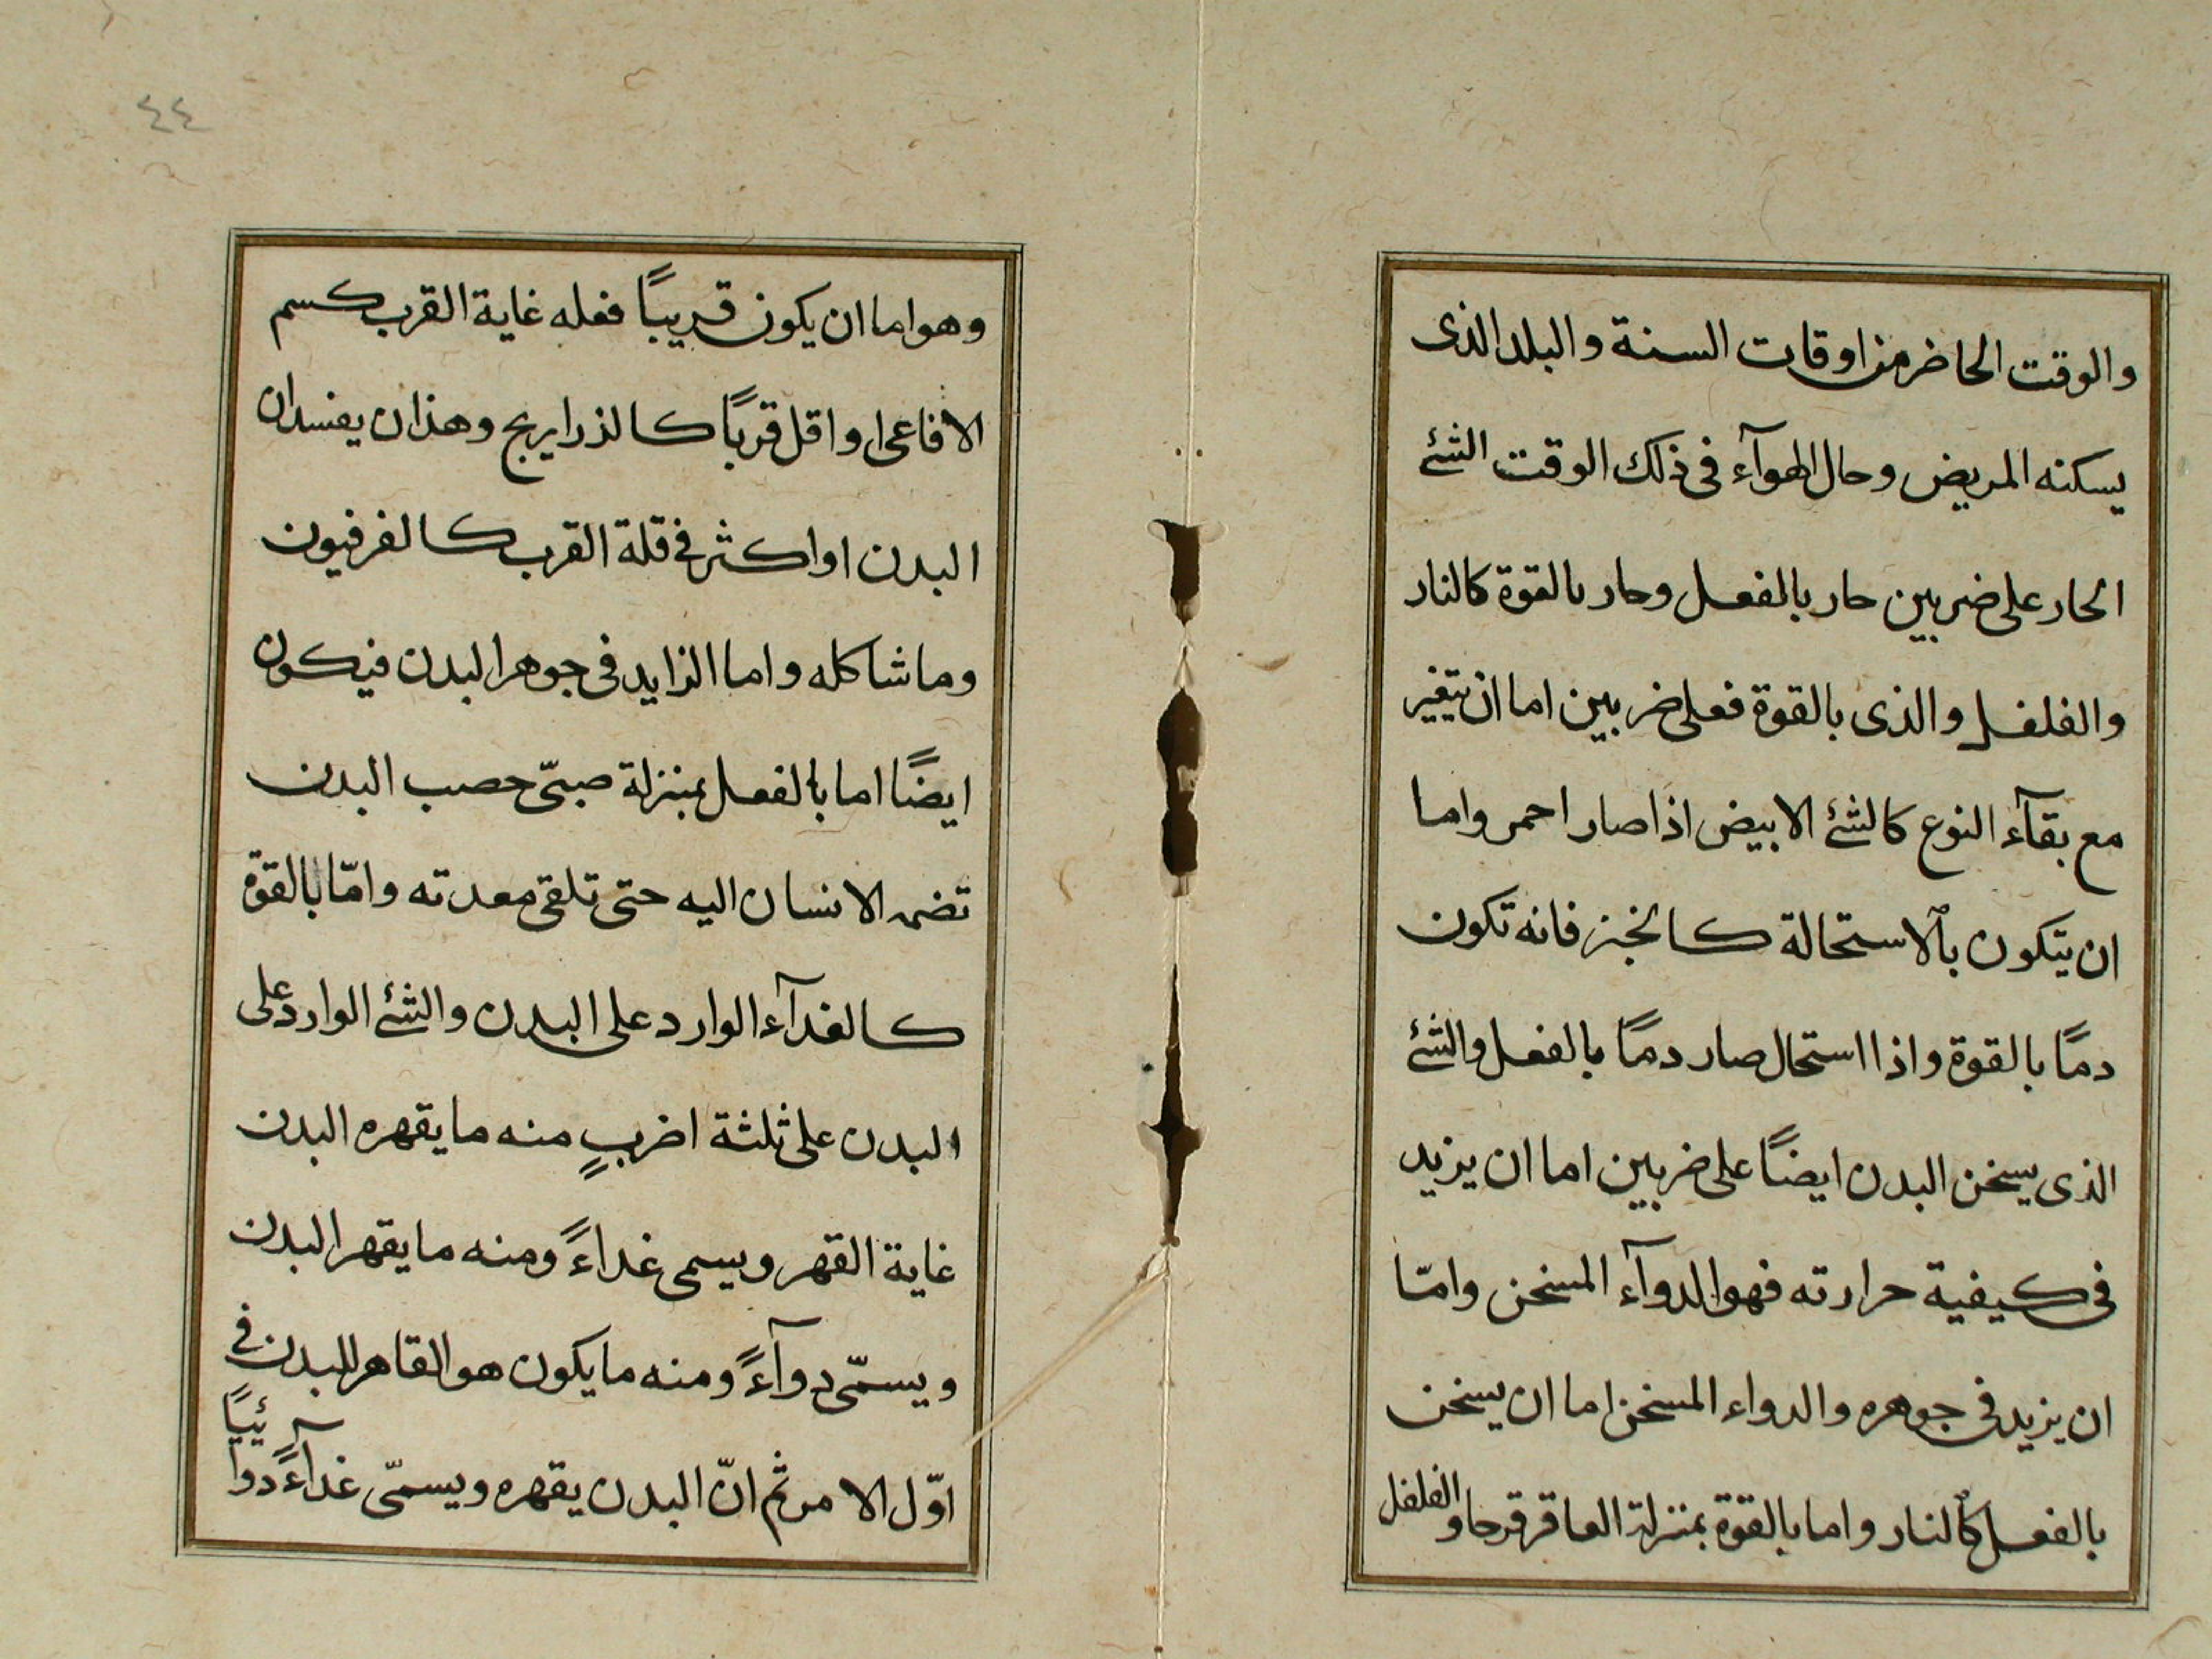 والوقت الحاضر من اوقات السنة والبلد الذى
يسكنه المريض وحال الهوآء فى ذلك الوقت الشئ
الحار على ضربين حار بالفعل وحار بالقوة كالنار
والفلفل والذى بالقوة فعلى ضربين اما ان يتغير
مع بقآء النوع كالشئ الابيض اذا صار احمر واما
ان يتكون بالاستحالة كالخبز فانه تكون
دمًا بالقوة واذا استحال صار دمًا بالفعل والشئ
الذى يسخن البدن ايضًا على ضربين اما ان يزيد
فى كيفية حرارته فهو الدوآء المسخن وامّا
ان يزيد فى جوهره والدواء المسخن اما ان يسخن
بالفعل كالنار واما بالقوة بمنزلة العاقرقرحا والفلفل
٤٤
وهو اما ان يكون قريبًا فعله غاية القرب كسم
الافاعى او اقل قربًا كالذراريح وهذان يفسدان
البدن او اكثر فى قلة القرب كالفرفيون
وما شاكله واما الزايد فى جوهر البدن فيكون
ايضًا اما بالفعل بمنزلة صبىّ خصب البدن
تضمه الانسان اليه حتى تلقى معدته وامّا بالقوة
كالغدآء الوارد على البدن والشئ الوارد على
البدن على ثلثة اضربٍ منه ما يقهره البدن
غاية القهر ويسمى غداءً ومنه ما يقهر البدن
ويسمّى دوآءً ومنه ما يكون هو القاهر للبدن فى
اوّل الامر ثم انّ البدن يقهره ويسمّى غدآءً دوآئيًا